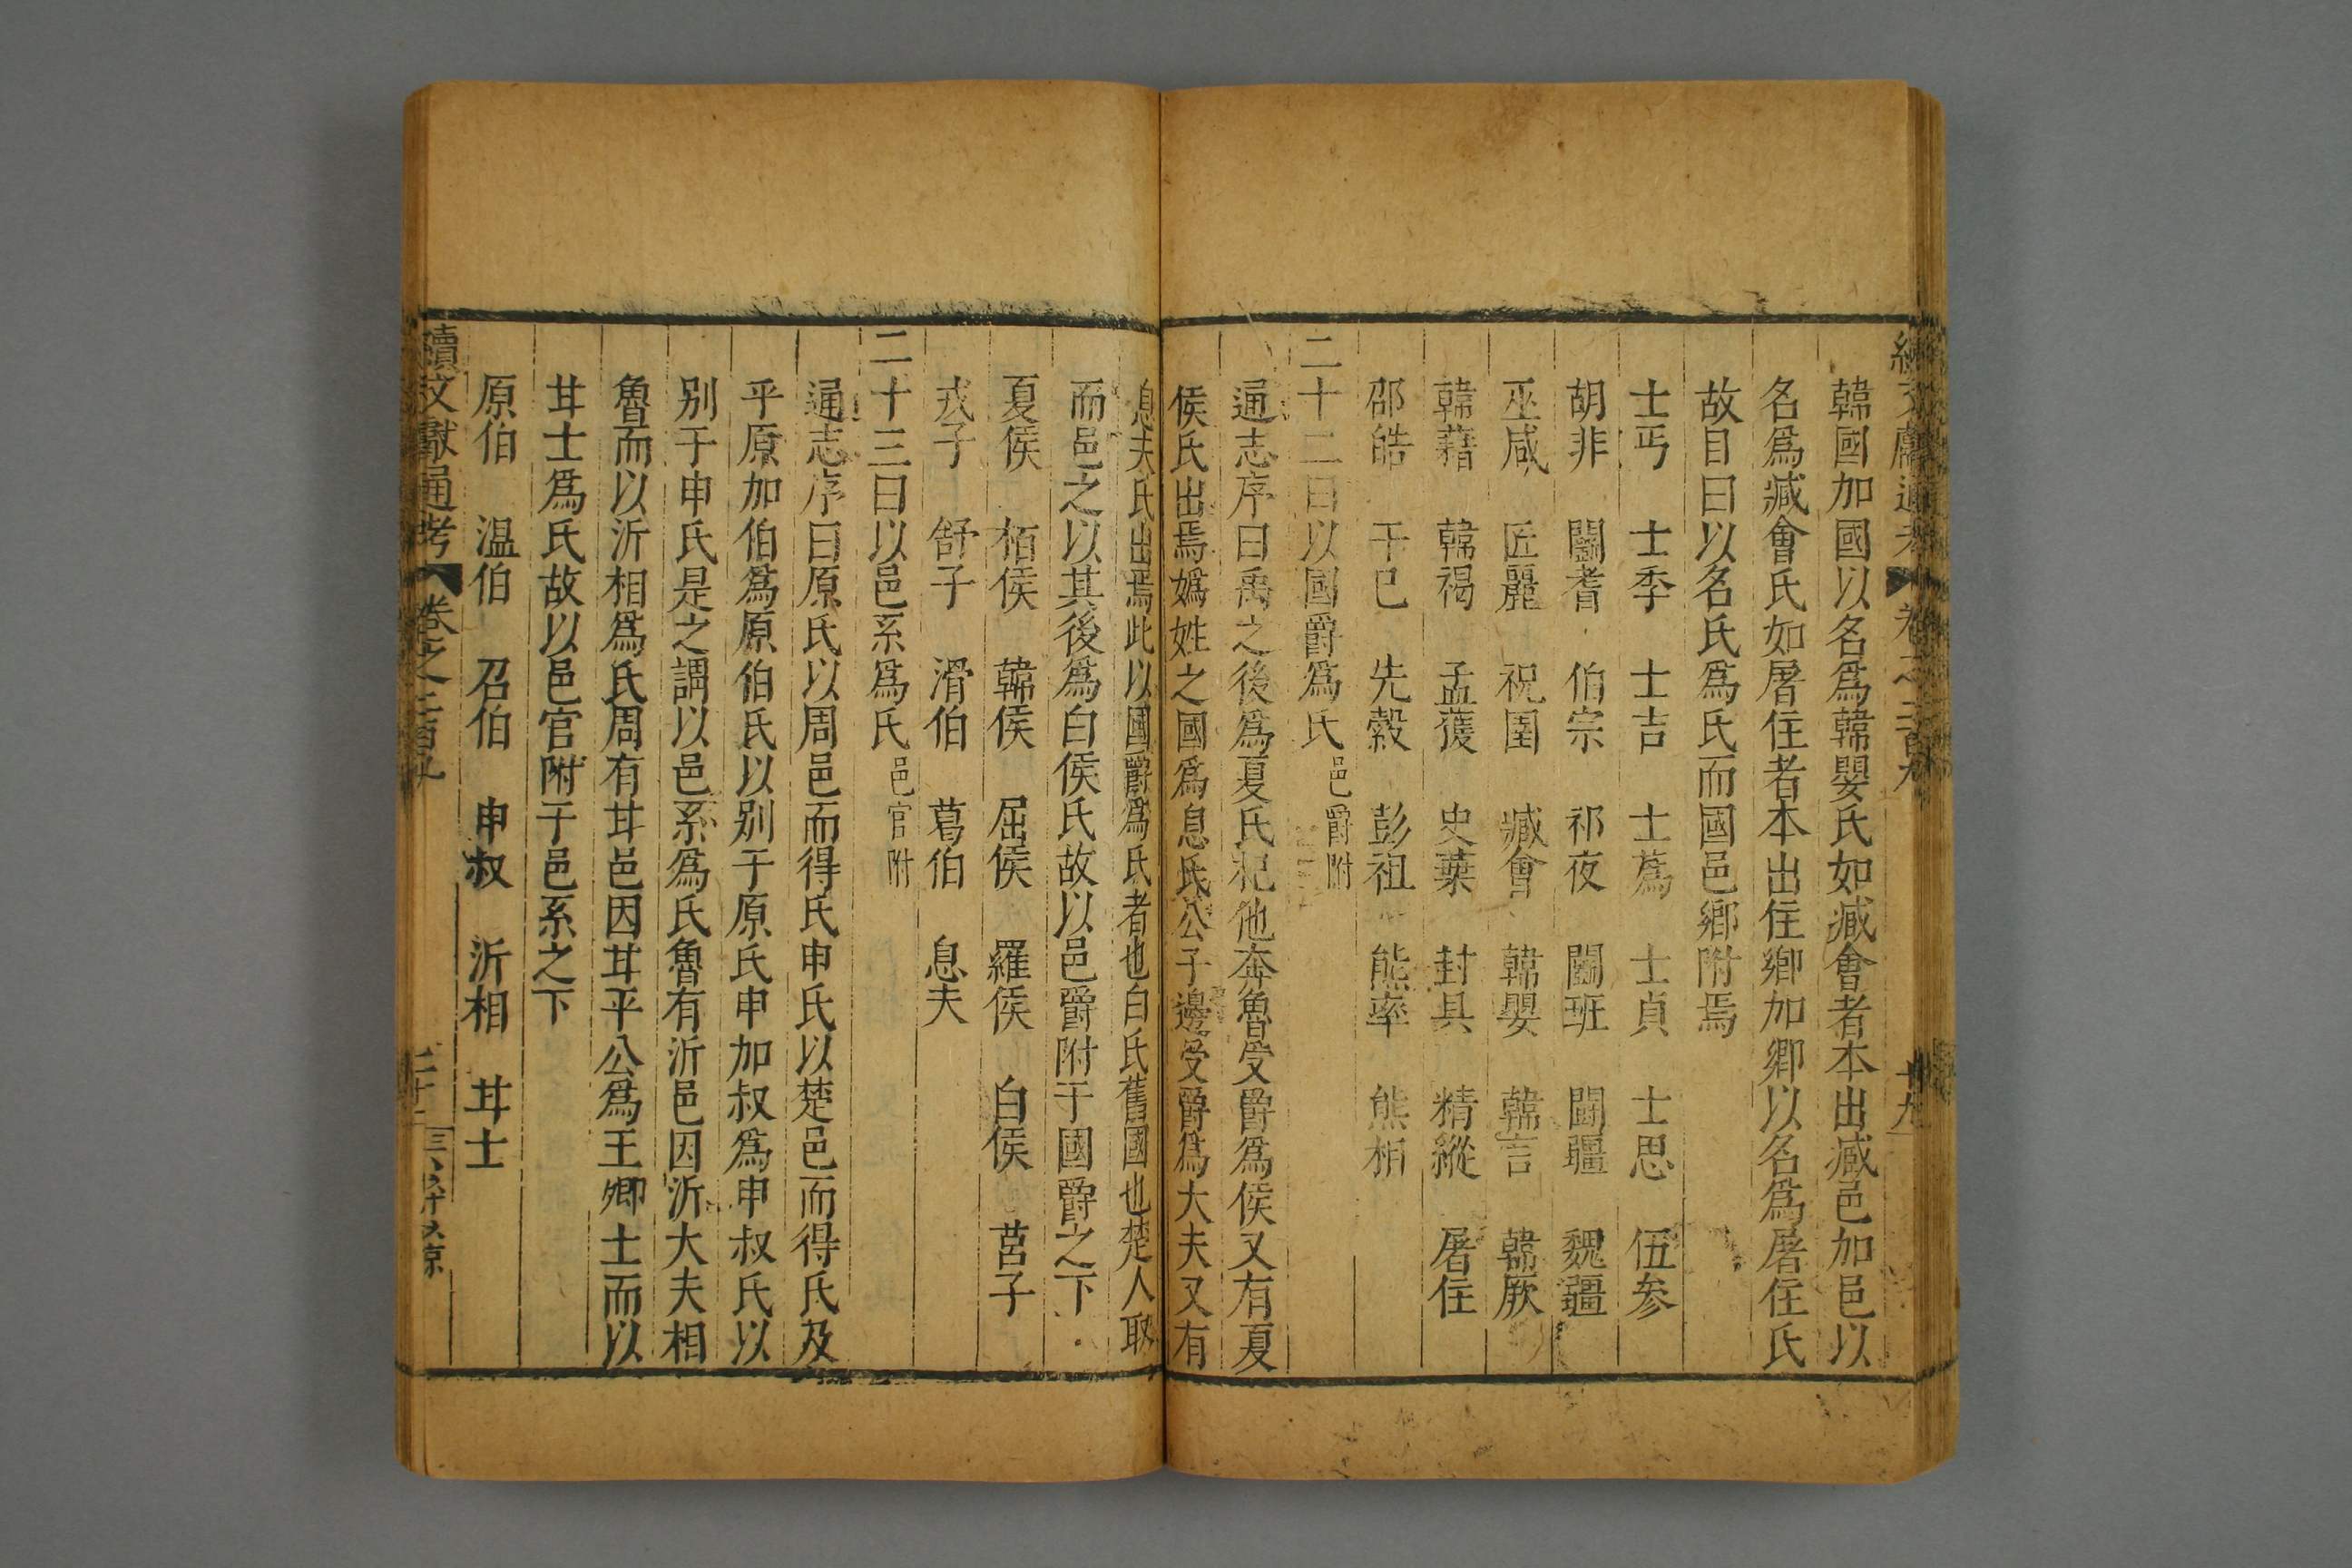 續文獻通考 卷之二百九 十九
韓國加國以名爲韓嬰氏如臧會者本出臧邑加邑以
名爲臧會氏如屠住者本出住鄉加鄉以名爲屠住氏
故目曰以名氏爲氏而國邑鄉附焉
士丐 士季 士吉 士蔿 士貞 士思 伍参
胡非 鬬耆 伯宗 祁夜 鬬班 鬬疆 魏疆
巫咸 匠麗 祝圉 臧會 韓嬰 韓言 韓厥
韓藉 韓褐 孟獲 史葉 封具 精縱 屠住
邵皓 干已 先縠 彭祖 熊率 熊相
二十二曰以國爵爲氏 邑爵附
通志序曰禹之後爲夏氏杞他奔魯受爵爲侯又有夏
侯氏出焉嬀姓之國爲息氏公子邊受爵爲大夫又有
息夫氏出焉此以國爵爲氏者也白氏舊國也楚人取
而邑之以其後爲白侯氏故以邑爵附于國爵之下
夏侯 栢侯 韓侯 屈侯 羅侯 白侯 莒子
戎子 舒子 滑伯 葛伯 息夫
二十三曰以邑系爲氏 邑官附
通志序曰原氏以周邑而得氏申氏以楚邑而得氏及
乎原加伯爲原伯氏以别于原氏申加叔爲申叔氏以
别于申氏是之謂以邑系爲氏魯有沂邑因沂大夫相
魯而以沂相爲氏周有甘邑因甘平公爲王卿士而以
甘士爲氏故以邑官附于邑系之下
原伯 温伯 召伯 申叔 沂相 甘士
續文獻通考 卷之二百九